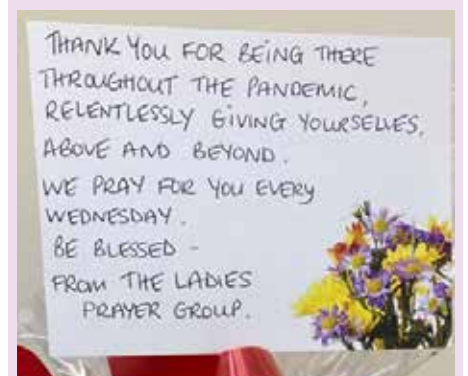 THANK YOU FOR BEING THERE
THROUGHOUT THE PANDEMIC,
RELENTLESSLY GIVING YOURSELVES,
ABOVE AND BEYOND.
WE PRAY FOR YOU EVERY
WEDNESDAY.
BE BLESSED -
FROM THE LADIES
PRAYER GROUP.